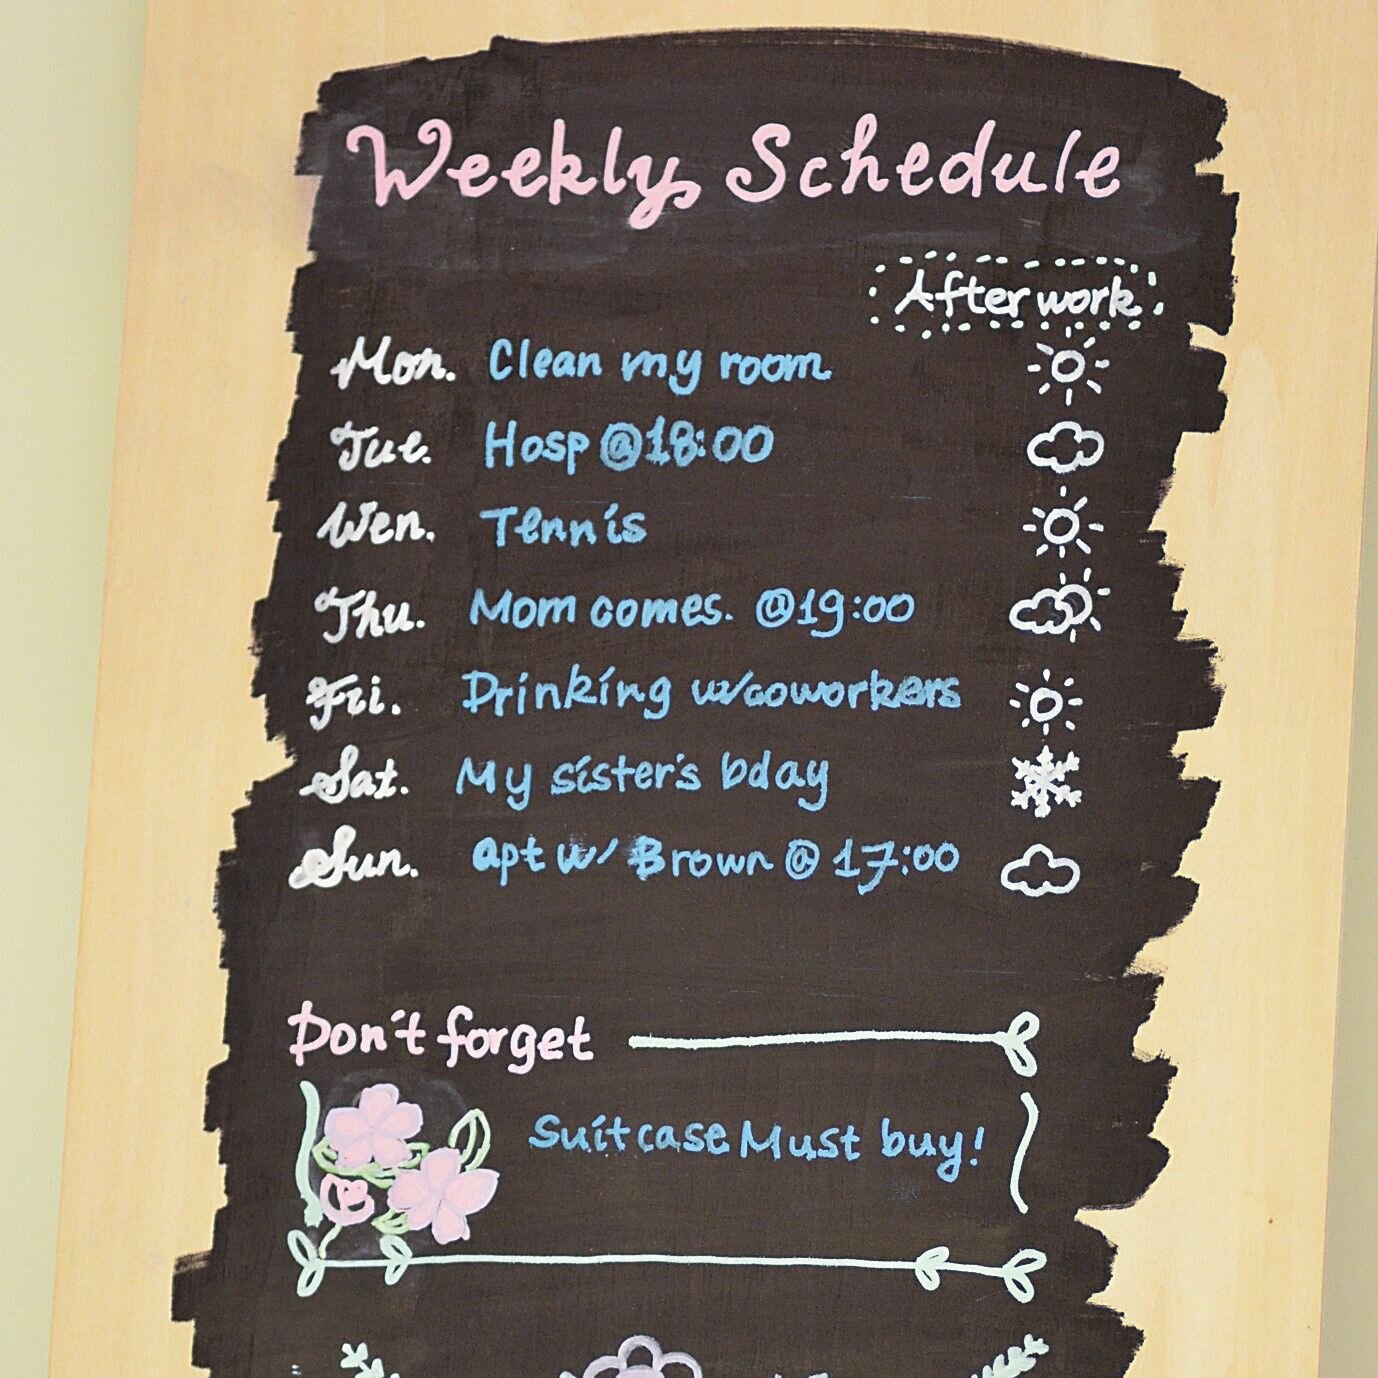 Weekly Schedule
After work
Mon. Clean my room
Tue. Hosp @18:00
Wen. Tennis
Thu. Mom comes. @19:00
Fri. Drinking w/coworkers
Sat. My sister's bday
Sun. apt w/ Brown @ 17:00
Don't forget
Suitcase Must buy!